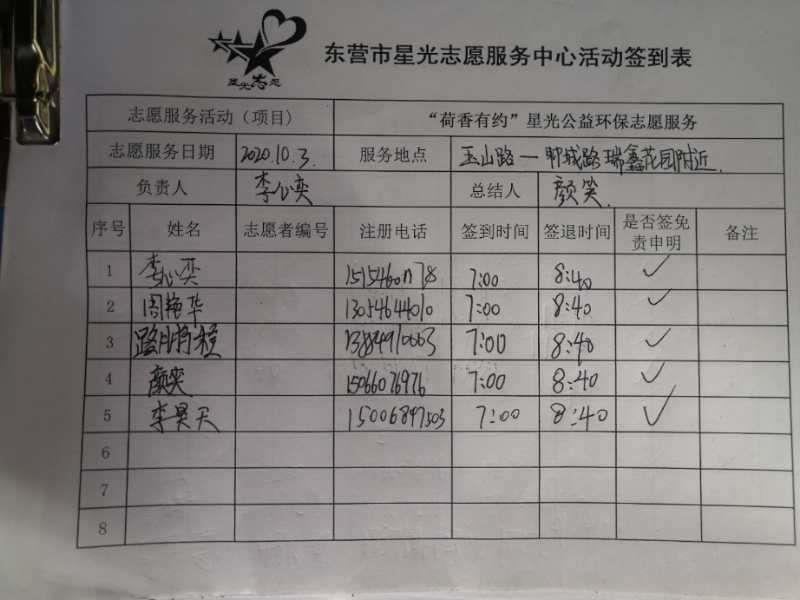 星光志愿
东营市星光志愿服务中心活动签到表
志愿服务活动（项目） “荷香有约”星光公益环保志愿服务
志愿服务日期 2020.10.3. 服务地点 玉山路一郓城路瑞鑫花园附近.
负责人 李心奕 总结人 颜笑.
序号 姓名 志愿者编号 注册电话 签到时间 签退时间 是否签免责申明 备注
1 李心奕 7:00 8:40 ✓
2 周艳华 13054644010 7:00 8:40 ✓
3 7:00 8:40 ✓
4 颜笑 15066076976 7:00 8:40 ✓
5 李昊天 15006897503 7:00 8:40 ✓
6
7
8